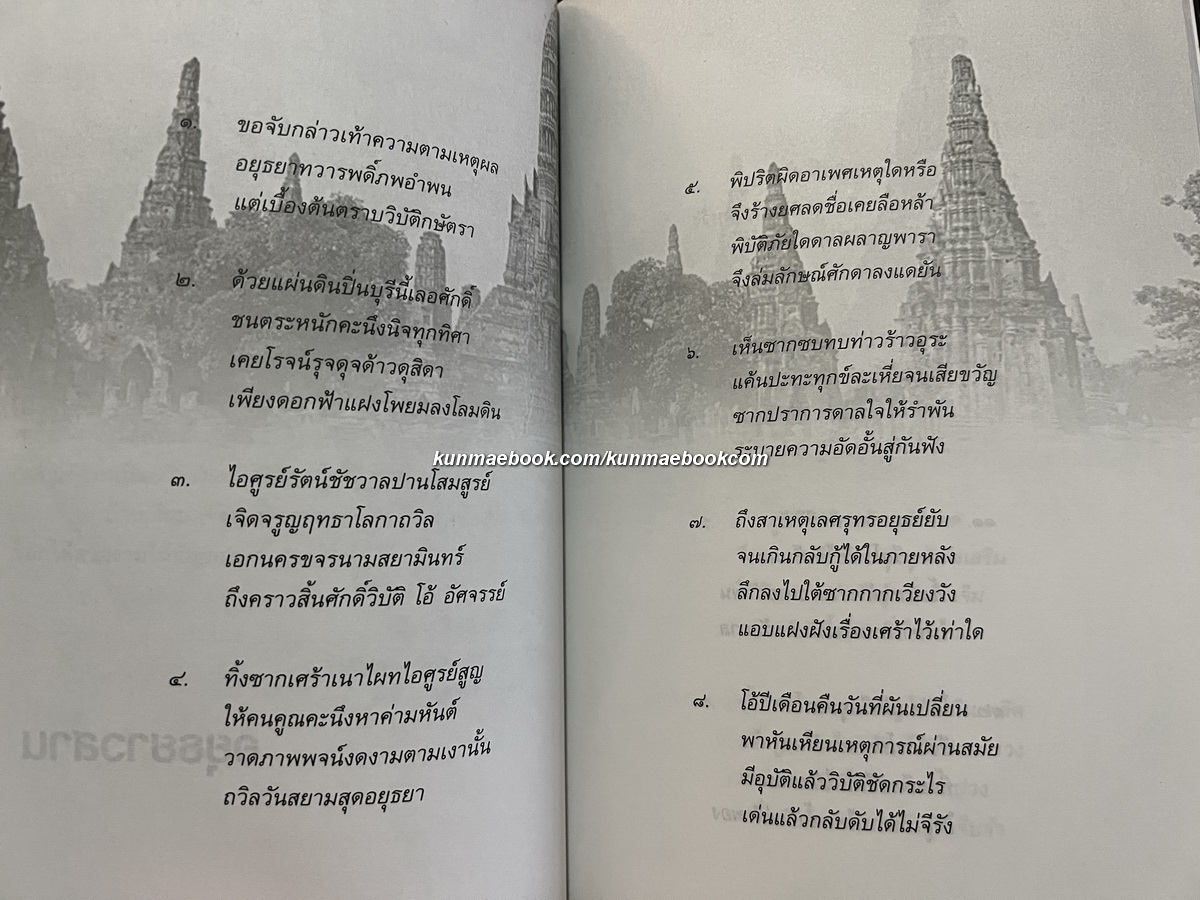 ๑. ขอจับกล่าวเท้าความตามเหตุผล
อยุธยาทวารพดิ์ภพอำพน
แต่เบื้องต้นตราบวิบัติกษัตรา
๒. ด้วยแผ่นดินปิ่นบุรีนี้เลอศักดิ์
ชนตระหนักคะนึงนิจทุกทิศา
เคยโรจน์รุจดุจด้าวดุสิดา
เพียงดอกฟ้าแฝงโพยมลงโลมดิน
๓. ไอศูรย์รัตน์ชัชวาลปานโสมสูรย์
เจิดจรูญฤทธาโลกาถวิล
เอกนครขจรนามสยามินทร์
ถึงคราวสิ้นศักดิ์วิบัติ โอ้ อัศจรรย์
๔. ทิ้งซากเศร้าเนาไผทไอศูรย์สูญ
ให้คนคูณคะนึงหาค่ามหันต์
วาดภาพพจน์งดงามตามเงานั้น
ถวิลวันสยามสุดอยุธยา
๕. พิปริตผิดอาเพศเหตุใดหรือ
จึงร้างยศลดชื่อเคยลือหล้า
พิบัติภัยใดดาลผลาญพารา
จึงล่มลักษณ์ศักดาลงแดยัน
๖. เห็นซากซบทบท่าวร้าวอุระ
แค้นปะทะทุกข์ละเหี่ยจนเสียขวัญ
ซากปราการดาลใจให้รำพัน
ระบายความอัดอั้นสู่กันฟัง
kunmaebook.com/kunmaebookcom
๗. ถึงสาเหตุเลศรุทรอยุธย์ยับ
จนเกินกลับกู้ได้ในภายหลัง
ลึกลงไปใต้ซากกากเวียงวัง
แอบแฝงฝังเรื่องเศร้าไว้เท่าใด
๘. โอ้ปีเดือนคืนวันที่ผันเปลี่ยน
พาหันเหียนเหตุการณ์ผ่านสมัย
มีอุบัติแล้ววิบัติชัดกระไร
เด่นแล้วกลับดับได้ไม่จีรัง